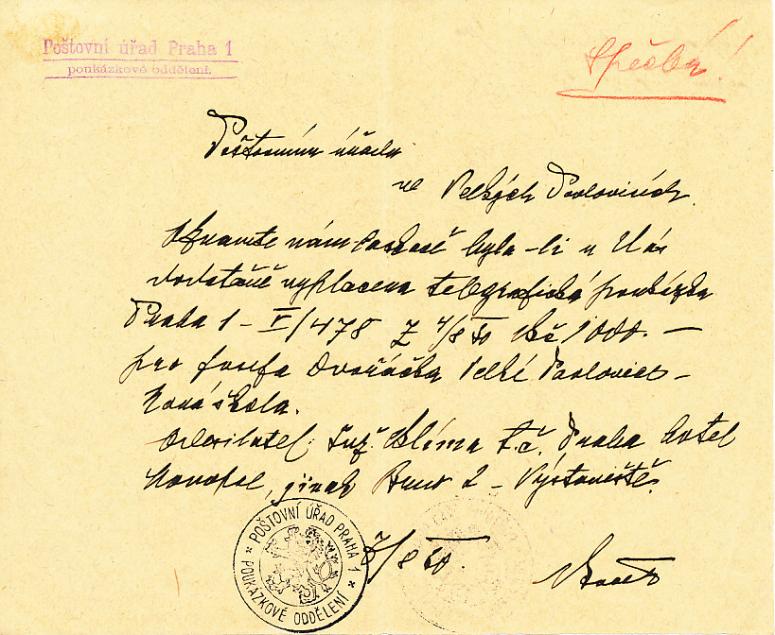 Poštovní úřad Praha 1
poukázkové oddělení.
Spěchá!
Poštovnímu úřadu
ve Velkých Pavlovicích.
Oznamte nám laskavě byla-li u Vás
dodatečně vyplacena telegrafická poukázka
Praha 1 - V/478 z 4/8 50 Kčs 1000.-
pro Josefa Dvořáčka Velké Pavlovice -
Nová škola.
Odesilatel: Inž. Klíma t.č. Praha hotel
Monopol, jinak Brno 2 - Výstaviště.
POŠTOVNÍ ÚŘAD PRAHA 1
POUKÁZKOVÉ ODDĚLENÍ
/8 50.